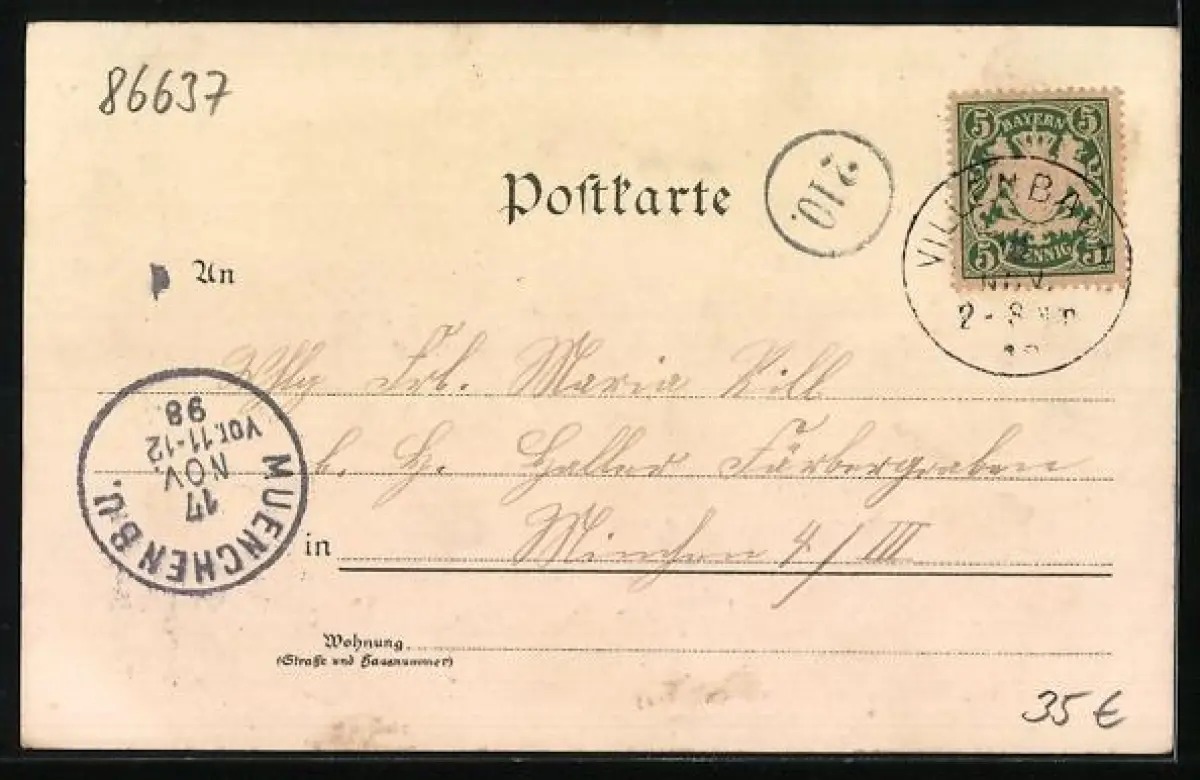 86637
Postkarte
210.
5 BAYERN 5
5 PFENNIG 5
NOV.
An
Frl. Maria Kill
b. H. Haller Färbergraben
in München 4/III
MUENCHEN B.U.
17
NOV.
Vor. 11-12
98
Wohnung
(Straße und Hausnummer)
35 €